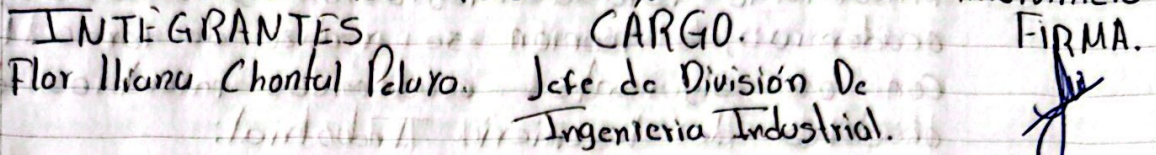 INTEGRANTES CARGO. FIRMA.
Flor Iliana Chontal Pelayo. Jefe de División De
Ingenieria Industrial.